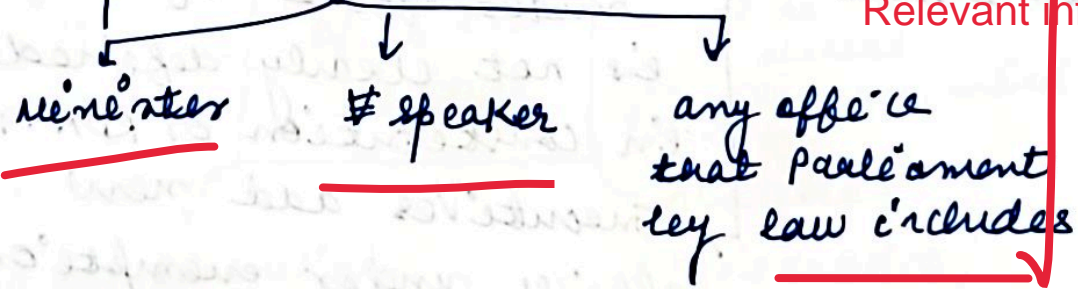 Relevant in
Minister
speaker
any office
that Parliament
by law includes